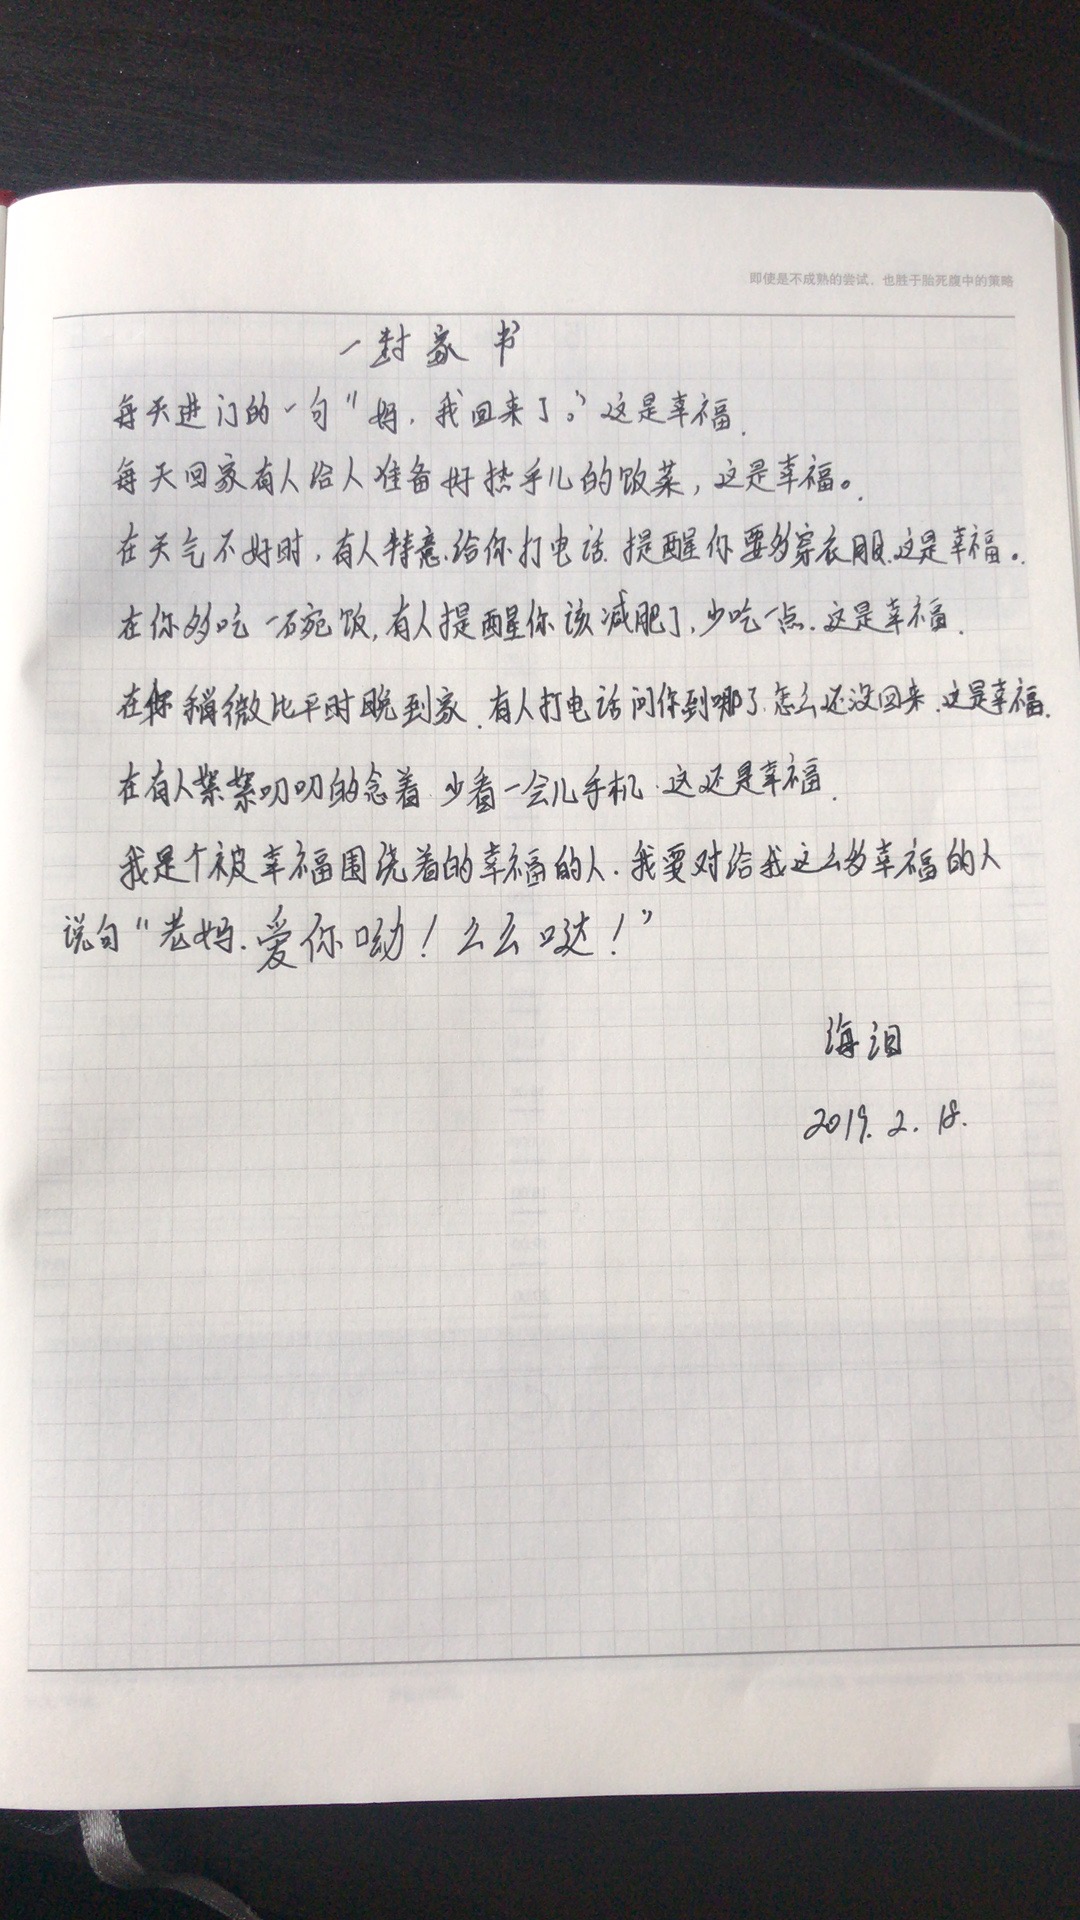 即使是不成熟的尝试，也胜于胎死腹中的策略
一封家书
每天进门的一句“妈，我回来了。”这是幸福.
每天回家有人给人准备好热乎儿的饭菜，这是幸福。
在天气不好时，有人特意给你打电话.提醒你要多穿衣服.这是幸福。
在你多吃一碗饭，有人提醒你该减肥了，少吃一点.这是幸福.
在你稍微比平时晚到家.有人打电话问你到哪了.怎么还没回来.这是幸福.
在有人絮絮叨叨的念着.少看一会儿手机.这还是幸福.
我是个被幸福围绕着的幸福的人.我要对给我这么多幸福的人
说句“老妈.爱你呦！么么哒！”
海泪
2019.2.18.